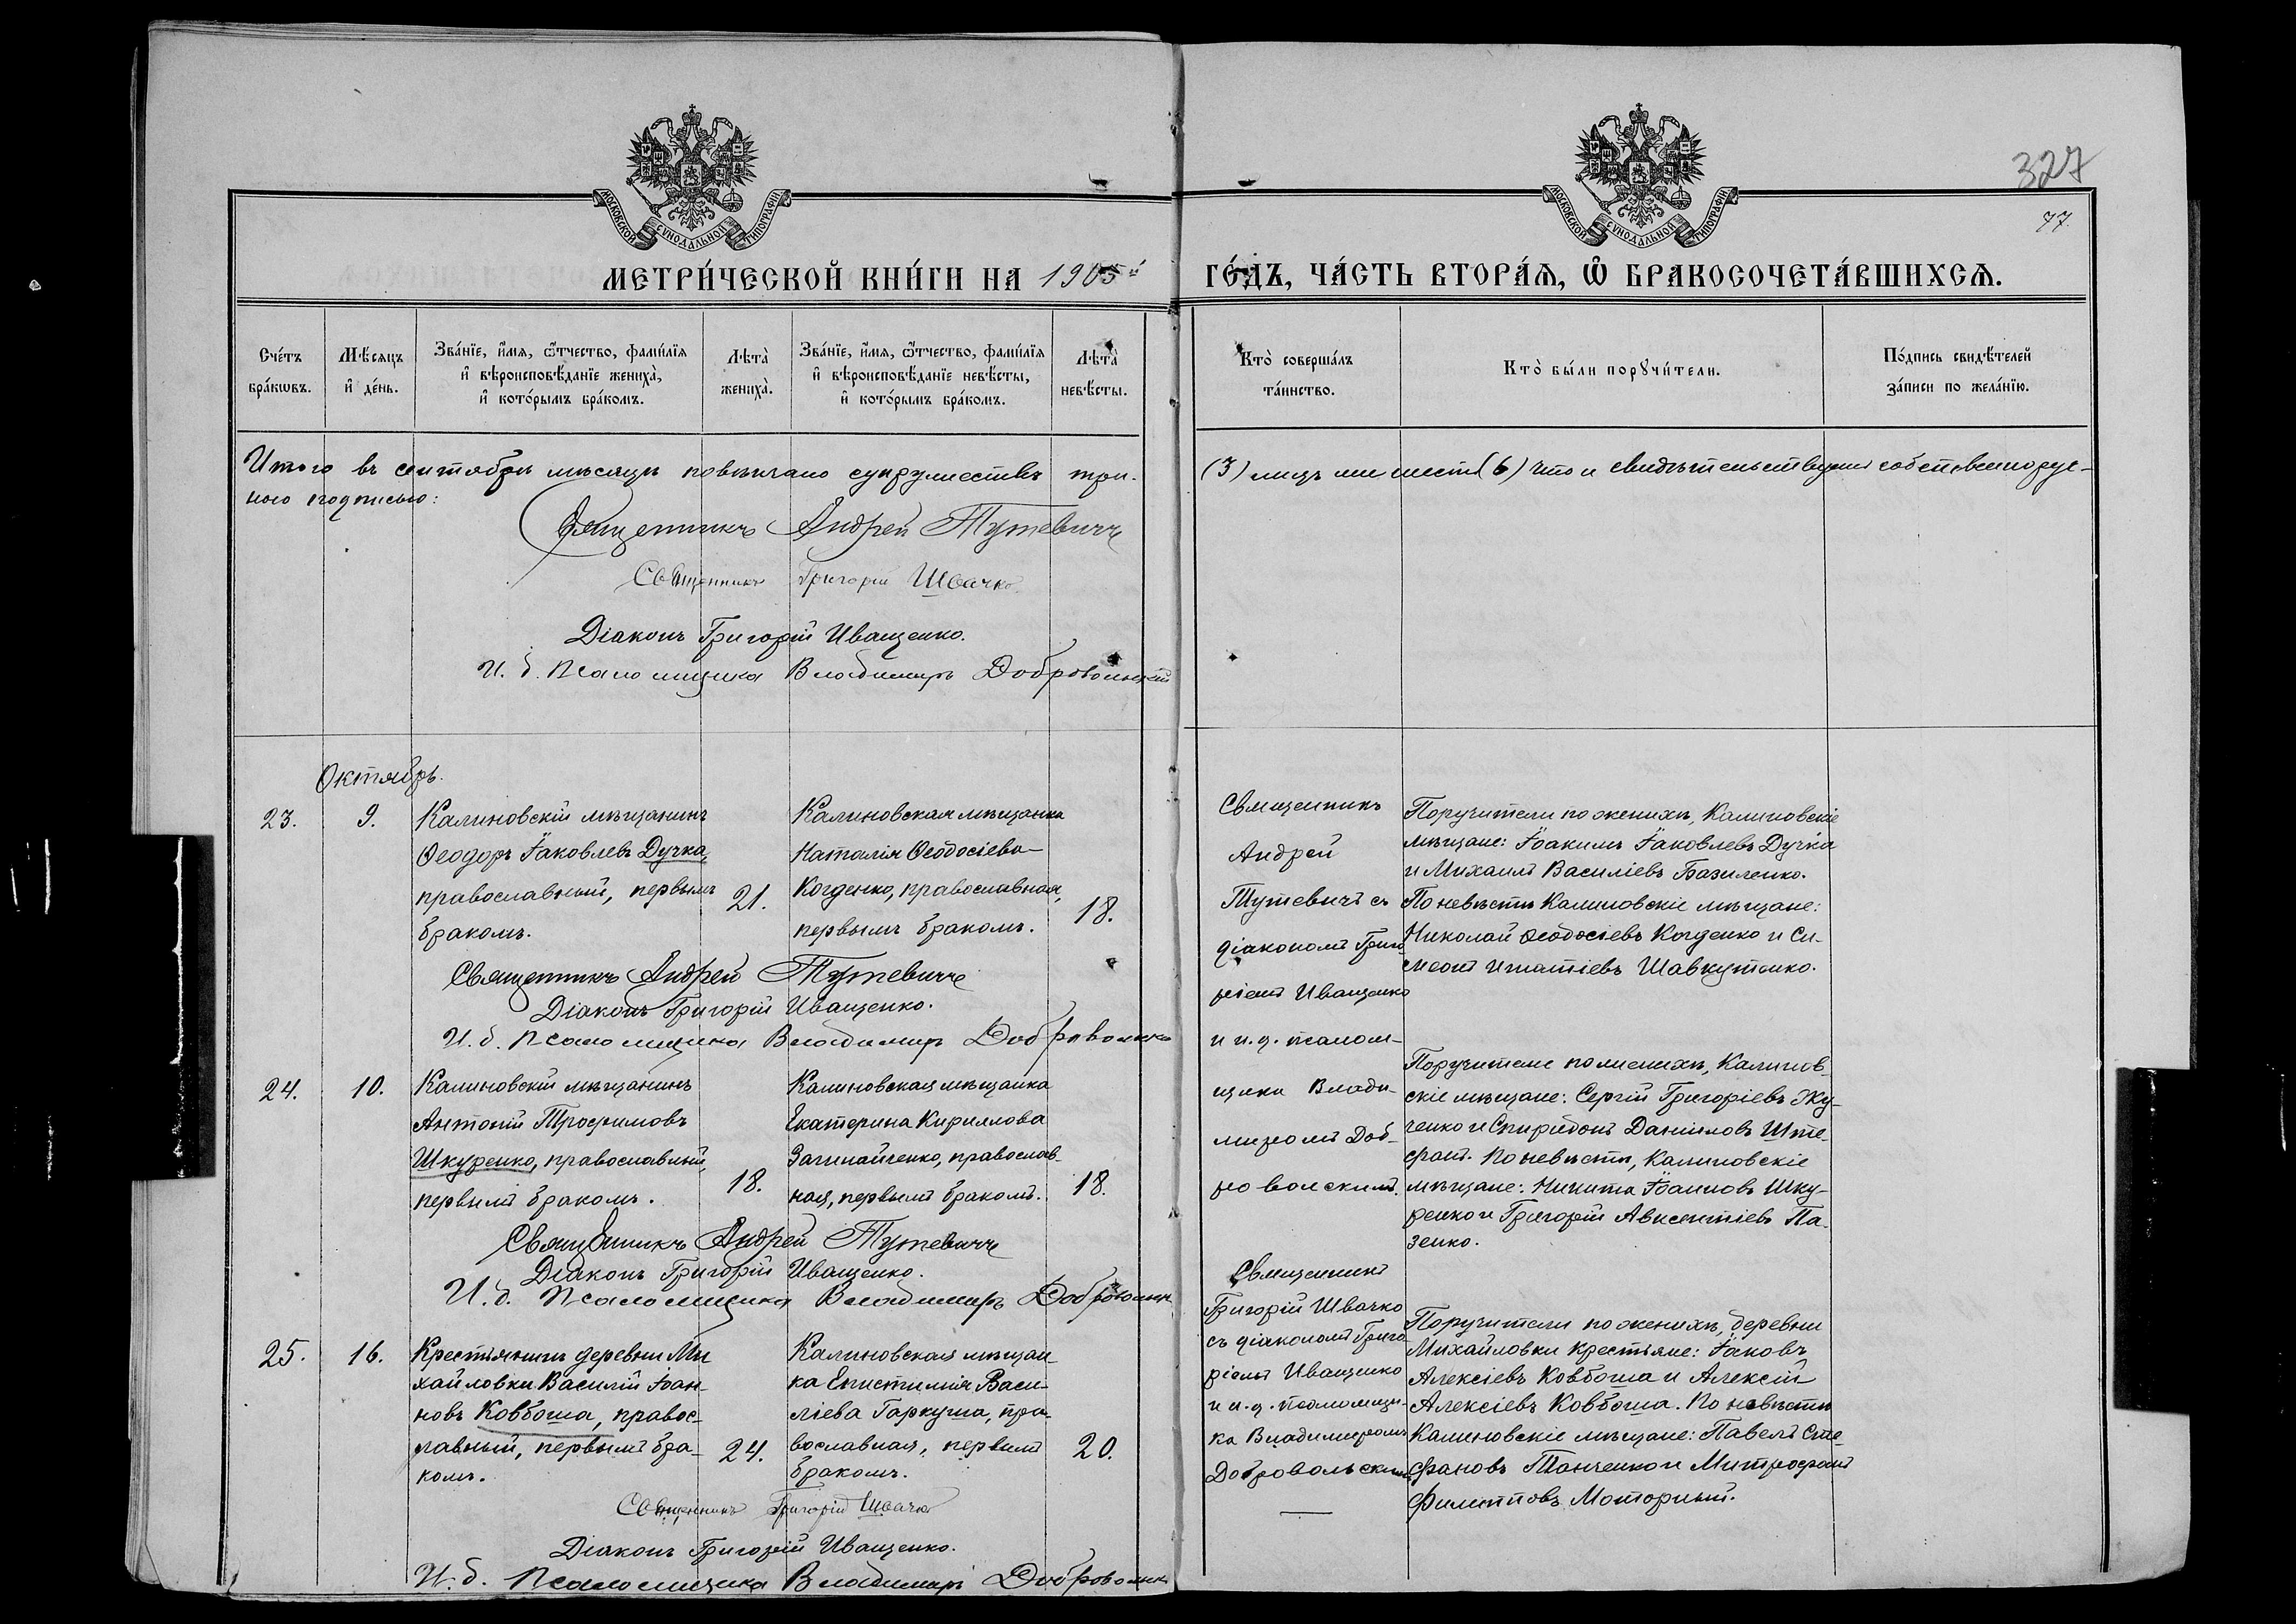 327
77.
МОСКОВСКОЙ СѴНОДАЛЬНОЙ ТИПОГРАФІИ
МОСКОВСКОЙ СѴНОДАЛЬНОЙ ТИПОГРАФІИ
МЕТРИ́ЧЕСКОЙ КНИ́ГИ НА 1905й ГО́ДЪ, ЧА́СТЬ ВТОРА́Ѧ, Ѡ҆ БРАКОСОЧЕТА́ВШИХСѦ.
Сче́тъ бра́кѡвъ.
Мѣ́сяцъ и҆ де́нь.
Зва́нїе, и҆́мѧ, ѻ҆́тчество, фамі́лїѧ
и҆ вѣроисповѣ́данїе жениха̀,
и҆ кото́рымъ бра́комъ.
Лѣта̀ жениха̀.
Зва́нїе, и҆́мѧ, ѻ҆́тчество, фамі́лїѧ
и҆ вѣроисповѣ́данїе невѣ́сты,
и҆ кото́рымъ бра́комъ.
Лѣта̀ невѣ́сты.
Кто̀ соверша́лъ та́инство.
Кто̀ бы́ли порꙋчи́тели.
По́дпись свидѣ́телей за́писи по жела́нїю.
Итого въ сентябрѣ мѣсяцѣ повѣнчано супружествъ три-
(3) лицъ же шесть (6) что и свидѣтельствуемъ собственноруч-
ною подписью:
Священникъ Андрей Тутевичъ
Священникъ Григорій Швачко
Діаконъ Григорій Иващенко.
И. д. Псаломщика Владимиръ Добровольскій
Октябрь.
23.
9.
Калиновскій мѣщанинъ
Ѳеодоръ Іаковлевъ Дучка,
православный, первымъ
бракомъ.
21.
Калиновская мѣщанка
Наталія Ѳеодосіева
Когденко, православная,
первымъ бракомъ.
18.
Священникъ
Андрей
Тутевичъ съ
діакономъ Григо-
ріемъ Иващенко
и и. д. псалом-
щика Влади-
миромъ Доб-
ровольскимъ.
Поручители по женихѣ, Калиновскіе
мѣщане: Іоакимъ Іаковлевъ Дучка
и Михаилъ Василіевъ Базиленко.
По невѣстѣ Калиновскіе мѣщане:
Николай Ѳеодосіевъ Когденко и Си-
меонъ Игнатіевъ Шавкутенко.
Священникъ Андрей Тутевичъ
Діаконъ Григорій Иващенко.
И. д. Псаломщика Владимиръ Добровольскій
24.
10.
Калиновскій мѣщанинъ
Антоній Трофимовъ
Шкуренко, православный,
первымъ бракомъ.
18.
Калиновская мѣщанка
Екатерина Кириллова
православ-
ная, первымъ бракомъ.
18.
Поручители по женихѣ, Калинов-
скіе мѣщане: Сергій Григоріевъ Жу-
ченко и Спиридонъ Даніиловъ Ште-
фанъ. По невѣстѣ, Калиновскіе
мѣщане: Никита Іоанновъ Шку-
ренко и Григорій Авксентіевъ Па-
зенко.
Священникъ Андрей Тутевичъ
Діаконъ Григорій Иващенко.
И. д. Псаломщика Владимиръ Добровольск
25.
16.
Крестьянинъ деревни Ми
хайловки Василій Іоан-
новъ Ковбоша, правос-
лавный, первымъ бра-
комъ.
24.
Калиновская мѣщан-
ка Епистимія Васи-
ліева Гаркуша, пра-
вославная, первымъ
бракомъ.
20.
Священникъ
Григорій Швачко
съ діакономъ Григо-
ріемъ Иващенко
и и. д. псаломщи-
ка Владимиромъ
Добровольскимъ
Поручители по женихѣ, деревни
Михайловки крестьяне: Іаковъ
Алексіевъ Ковбоша и Алексій
Алексіевъ Ковбоша. По невѣстѣ
Калиновскіе мѣщане: Павелъ Сте-
фановъ Танченко и Митрофанъ
Филипповъ Моторный.
Священникъ Григорій Швачко
Діаконъ Григорій Иващенко.
И. д. Псаломщика Владимиръ Добровольск